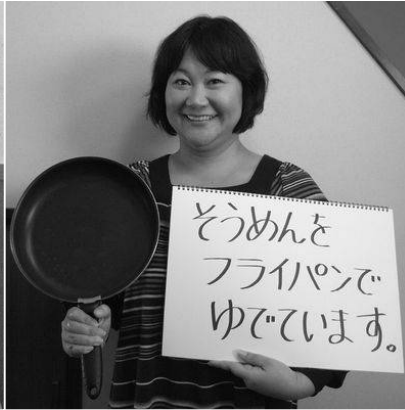 そうめんを
フライパンで
ゆでています。